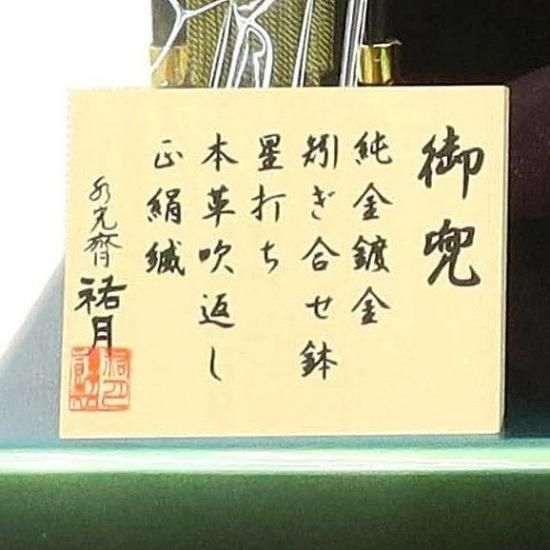 御兜
純金鍍金
矧ぎ合せ鉢
星打ち
本革吹返し
正絹縅
祐月